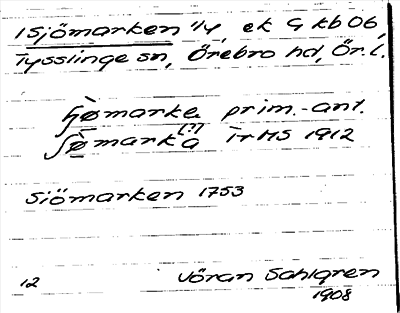 1 Sjömarken 1/4, ek G kb 06,
Tysslinge sn, Örebro hd, Ör. l.
ʃjø̀marke prim.-ant.
ʃø̀marka (?) Tr MS 1912
Siömarken 1753
12
Jöran Sahlgren
1908